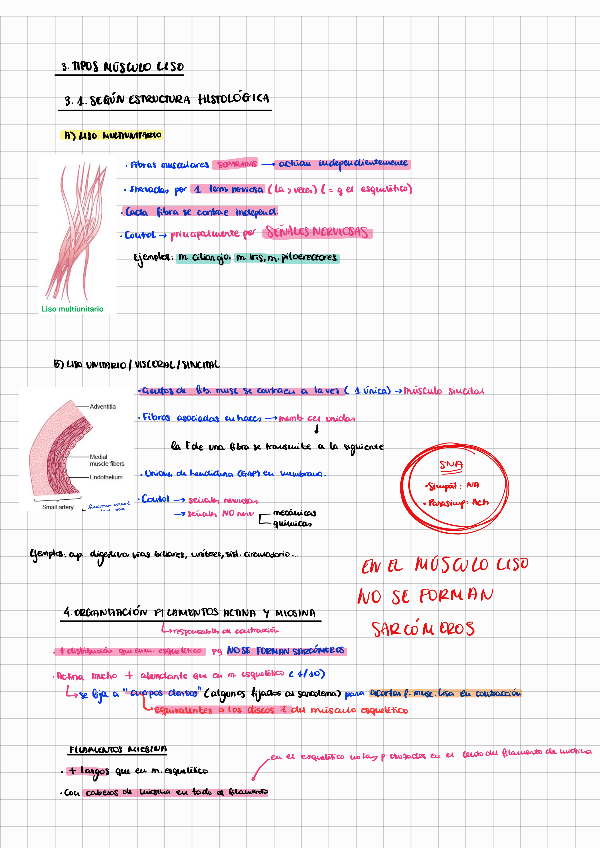 3. TIPOS MÚSCULO LISO
3.1. SEGÚN ESTRUCTURA HISTOLÓGICA
A) LISO MULTIUNITARIO
· Fibras musculares SEPARADAS → actúan independientemente
· Inervadas por 1 term. nerviosa (la > veces) (= q el esquelético)
· Cada fibra se contrae independ.
· Control → principalmente por SEÑALES NERVIOSAS
Ejemplos: m. ciliar ojo, m. iris, m. piloerectores
Liso multiunitario
B) LISO UNITARIO / VISCERAL / SINCITAL
· Cientos de fib. musc se contraen a la vez (1 única) → músculo sincitial
· Fibras asociadas en haces → memb cel unidas
↓
la F de una fibra se transmite a la siguiente
· Uniones de hendidura (GAP) en membrana.
· Control → señales nerviosas
→ señales NO nerv
mecánicas
químicas
Adventitia
Medial
muscle fibers
Endothelium
Small artery
SNA
· Simpát: NA
· Parasimp: Ach
Ejemplos: ap. digestivo, vías biliares, uréteres, sist. circulatorio...
EN EL MÚSCULO LISO
NO SE FORMAN
SARCÓMEROS
4. ORGANIZACIÓN FILAMENTOS ACTINA Y MIOSINA
↳ responsables de contracción
≠ distribución que en m. esquelético pq NO SE FORMAN SARCÓMEROS
· Actina mucho + abundante que en m. esquelético (1/10)
↳ se fija a "cuerpos densos" (algunos fijados al sarcolema) para acortar f. musc. lisa en contracción
↳ equivalentes a los discos Z del músculo esquelético
FILAMENTOS MIOSINA
· + largos que en m. esquelético
· Con cabezas de miosina en todo el filamento
en el esquelético no hay p cruzados en el centro del filamento de miosina